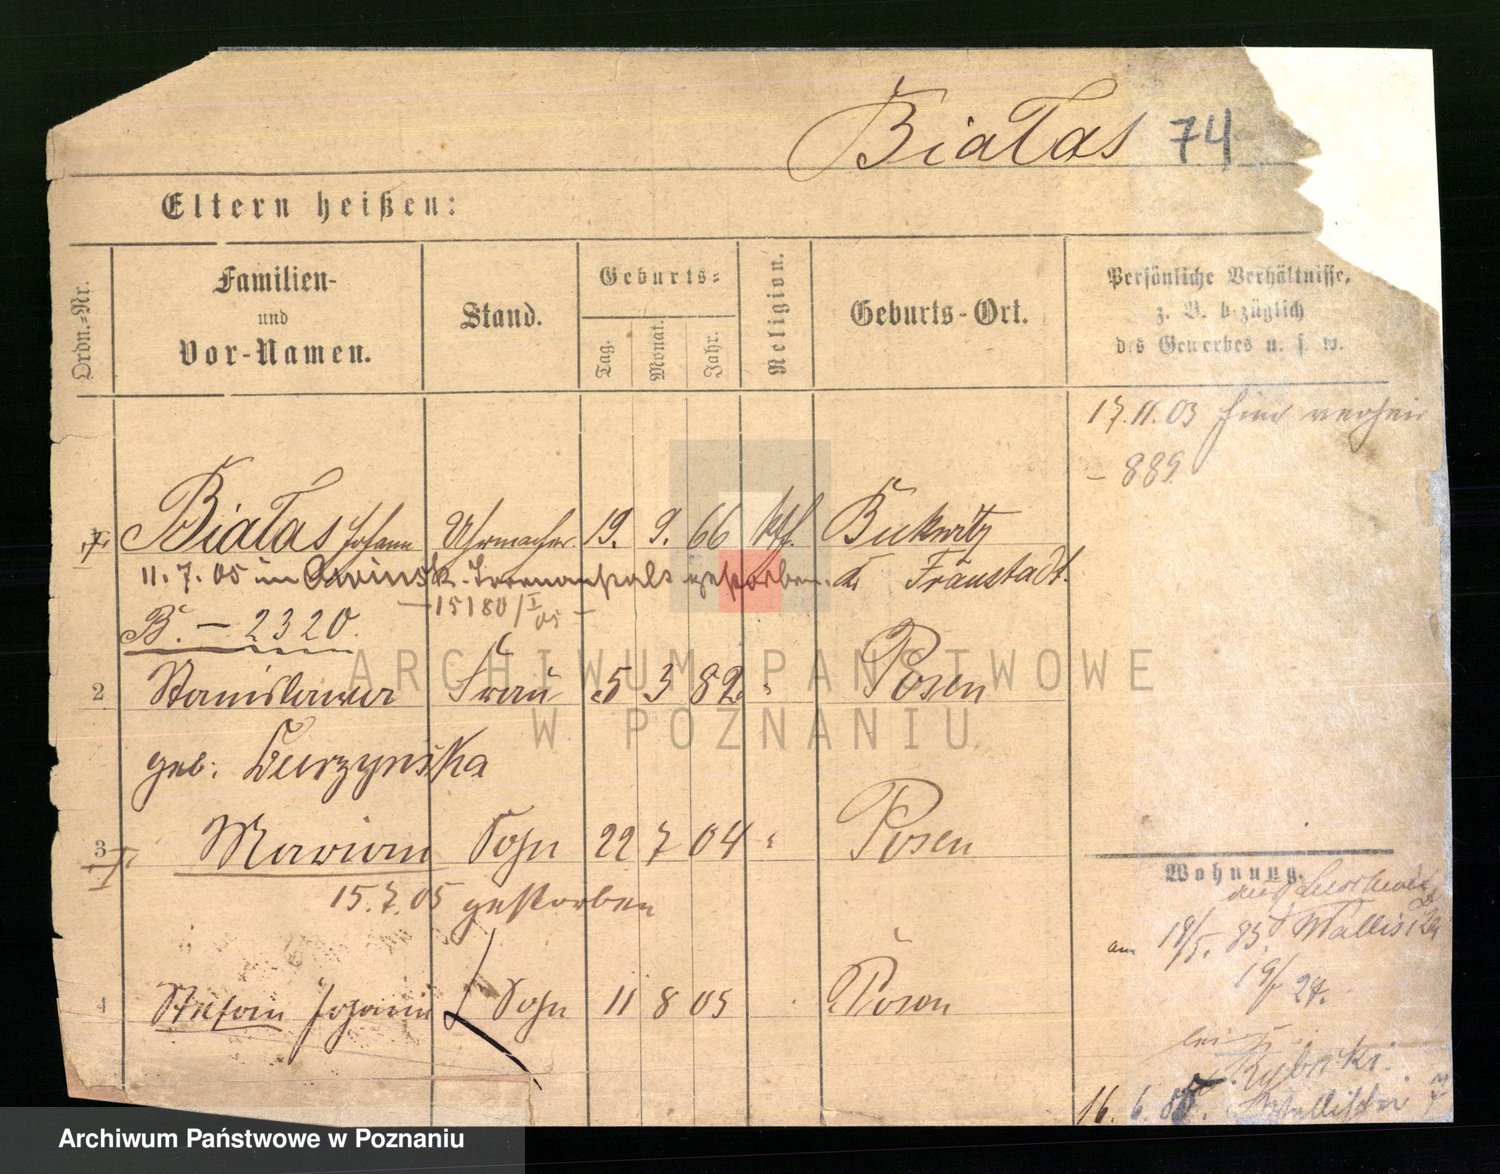 Białas 74
Eltern heißen:
Ordn.-Nr.
Familien-
und
Vor-Namen.
Stand.
Geburts-
Tag.
Monat.
Jahr.
Religion.
Geburts-Ort.
Persönliche Verhältnisse,
z. B. bezüglich
des Gewerbes u. s. w.
17.11.03 hier verhei
- 889
1 Białas Johann Uhrmacher 19. 9. 66 kth. Bukwitz
11.7.05 in Owinsk. Irrenanstalt gestorben. Kr. Fraustadt.
- 15180/I 05 -
B. - 2320.
2 Stanislawa Frau 5 3 82 " Posen
geb. Durzynska
3 Marian Sohn 22 7 04 " Posen
15.7.05 gestorben
4 Stefan Johann Sohn 11 8 05 Posen
Wohnung.
aus
am 18/5. 85. Wallis
19/ 24.
bei
Rybicki
16. 6. 85. Wallischei
ARCHIWUM PAŃSTWOWE
W POZNANIU
Archiwum Państwowe w Poznaniu